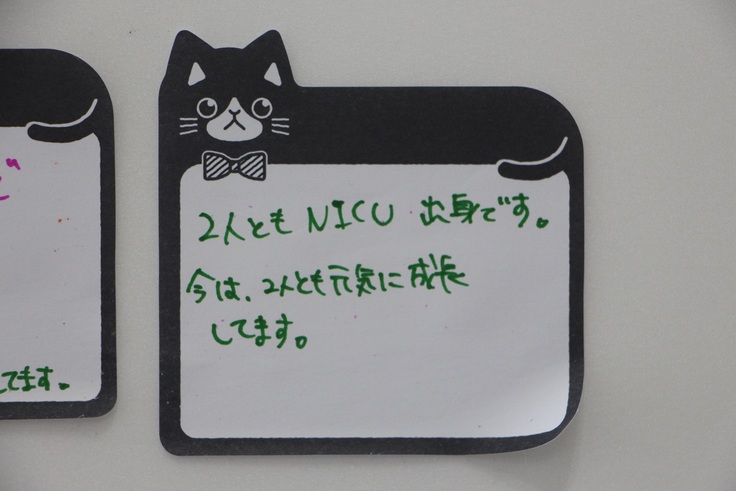 2人とも NICU 出身です。
今は、2人とも元気に成長
してます。
てます。